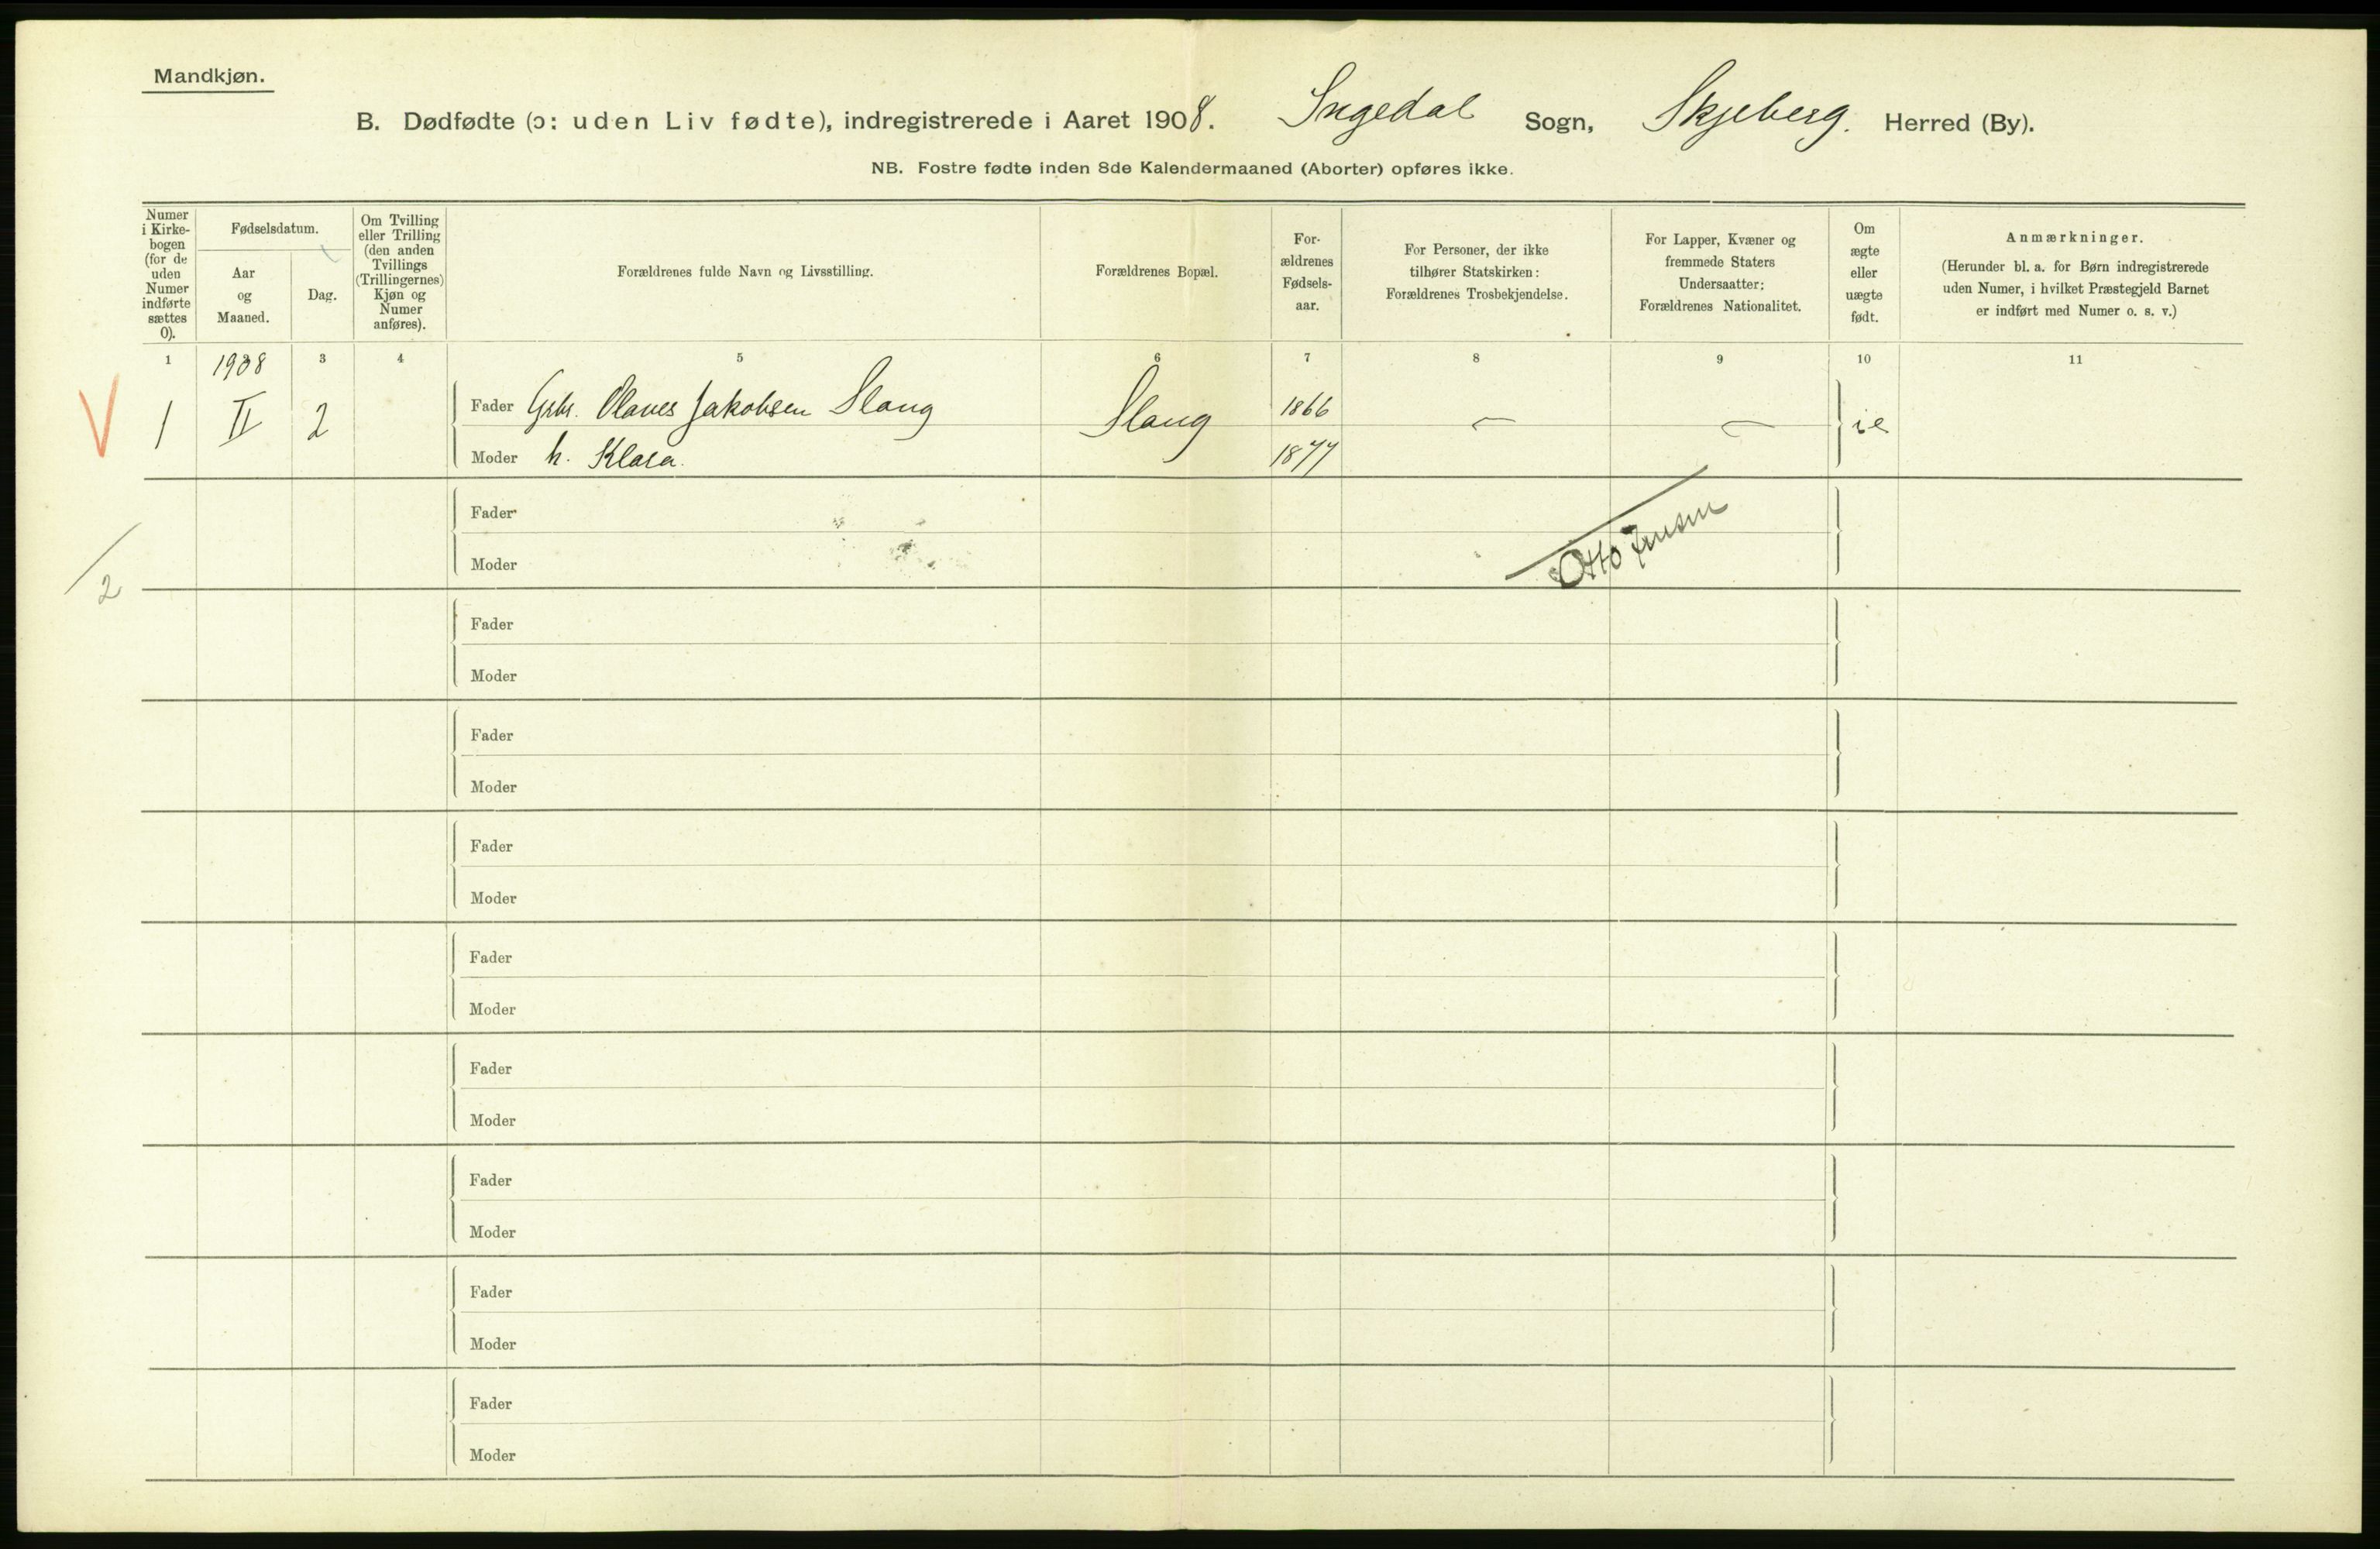 Mandkjøn.
B. Dødfødte (ɔ: uden Liv fødte), indregistrerede i Aaret 1908. Ingedal Sogn, Skjeberg. Herred (By).
NB. Fostre fødte inden 8de Kalendermaaned (Aborter) opføres ikke.
Numer
i Kirke-
bogen
(for de
uden
Numer
indførte
sættes
0).
Fødselsdatum.
Aar
og
Maaned.
Dag.
Om Tvilling
eller Trilling
(den anden
Tvillings
(Trillingernes)
Kjøn og
Numer
anføres).
Forældrenes fulde Navn og Livsstilling.
Forældrenes Bopæl.
For-
ældrenes
Fødsels-
aar.
For Personer, der ikke
tilhører Statskirken:
Forældrenes Trosbekjendelse.
For Lapper, Kvæner og
fremmede Staters
Undersaatter:
Forældrenes Nationalitet.
Om
ægte
eller
uægte
født.
Anmærkninger.
(Herunder bl. a. for Børn indregistrerede
uden Numer, i hvilket Præstegjeld Barnet
er indført med Numer o. s. v.)
1 1908 3 4 5 6 7 8 9 10 11
V 1 II 2 Fader Grbr. Olaves Jakobsen Slang Slang 1866 — — ie
Moder h. Klara. 1877
Fader
Otto Jensen
Moder
2
Fader
Moder
Fader
Moder
Fader
Moder
Fader
Moder
Fader
Moder
Fader
Moder
Fader
Moder
Fader
Moder